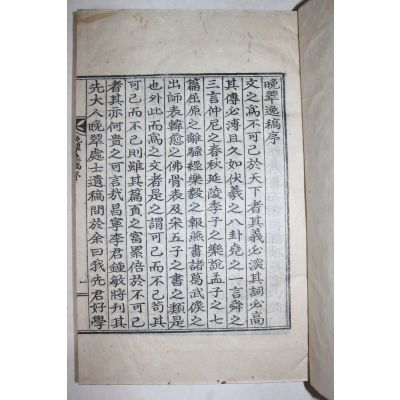 晩翠逸稿序
文之寓不可已於天下者其義必深其詞必高
其傳必溥且久如伏羲之八卦堯之一言舜之
三言仲尼之春秋延陵季子之樂說孟子之七
篇屈原之離騷經樂毅之報燕書諸葛武侯之
出師表韓愈之佛骨表及宋五子之書之類是
也外此而寓之文者是之謂可已而不已苟其
可已而不已則雖其篇頁之富累倍於不可已
者其亦何貴之可言哉昌寧李君鍾敏將刋其
先大人晩翠處士遺稿問於余曰我先君好學